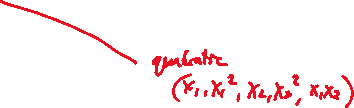 quadratic
(x₁, x₁², x₂, x₂², x₁x₂)